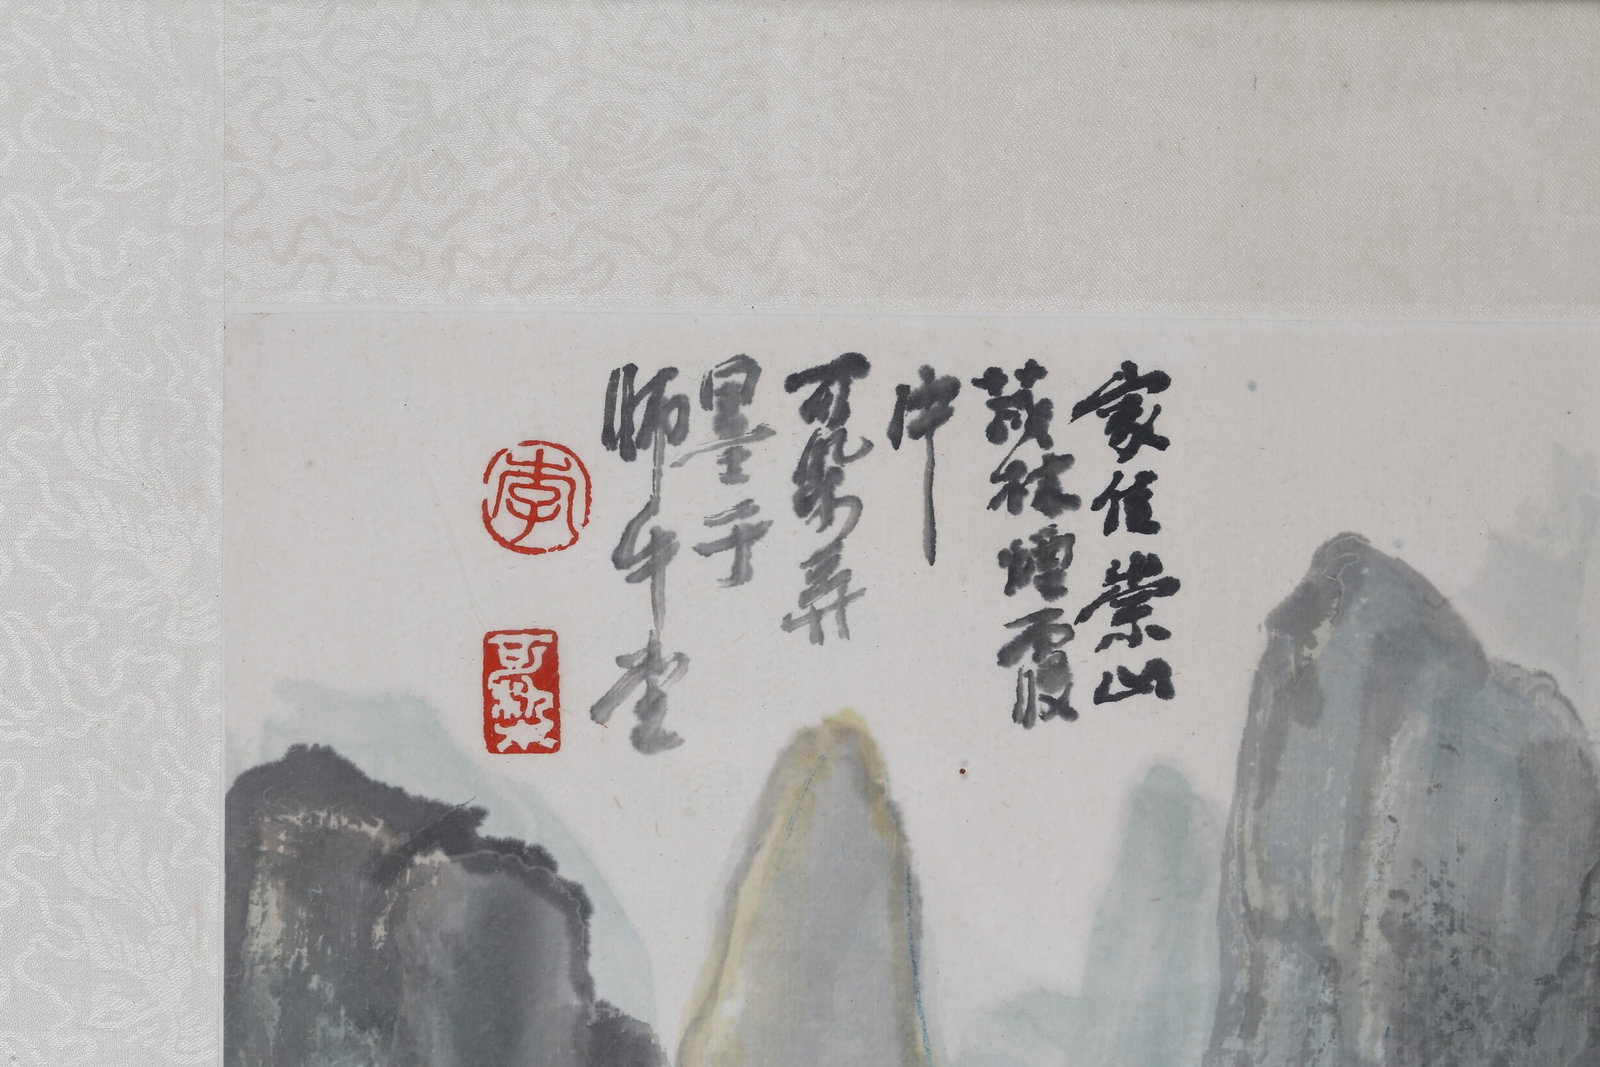 家住崇山
茂林煙霞
中
可染弄
墨于
師牛堂
李
可染